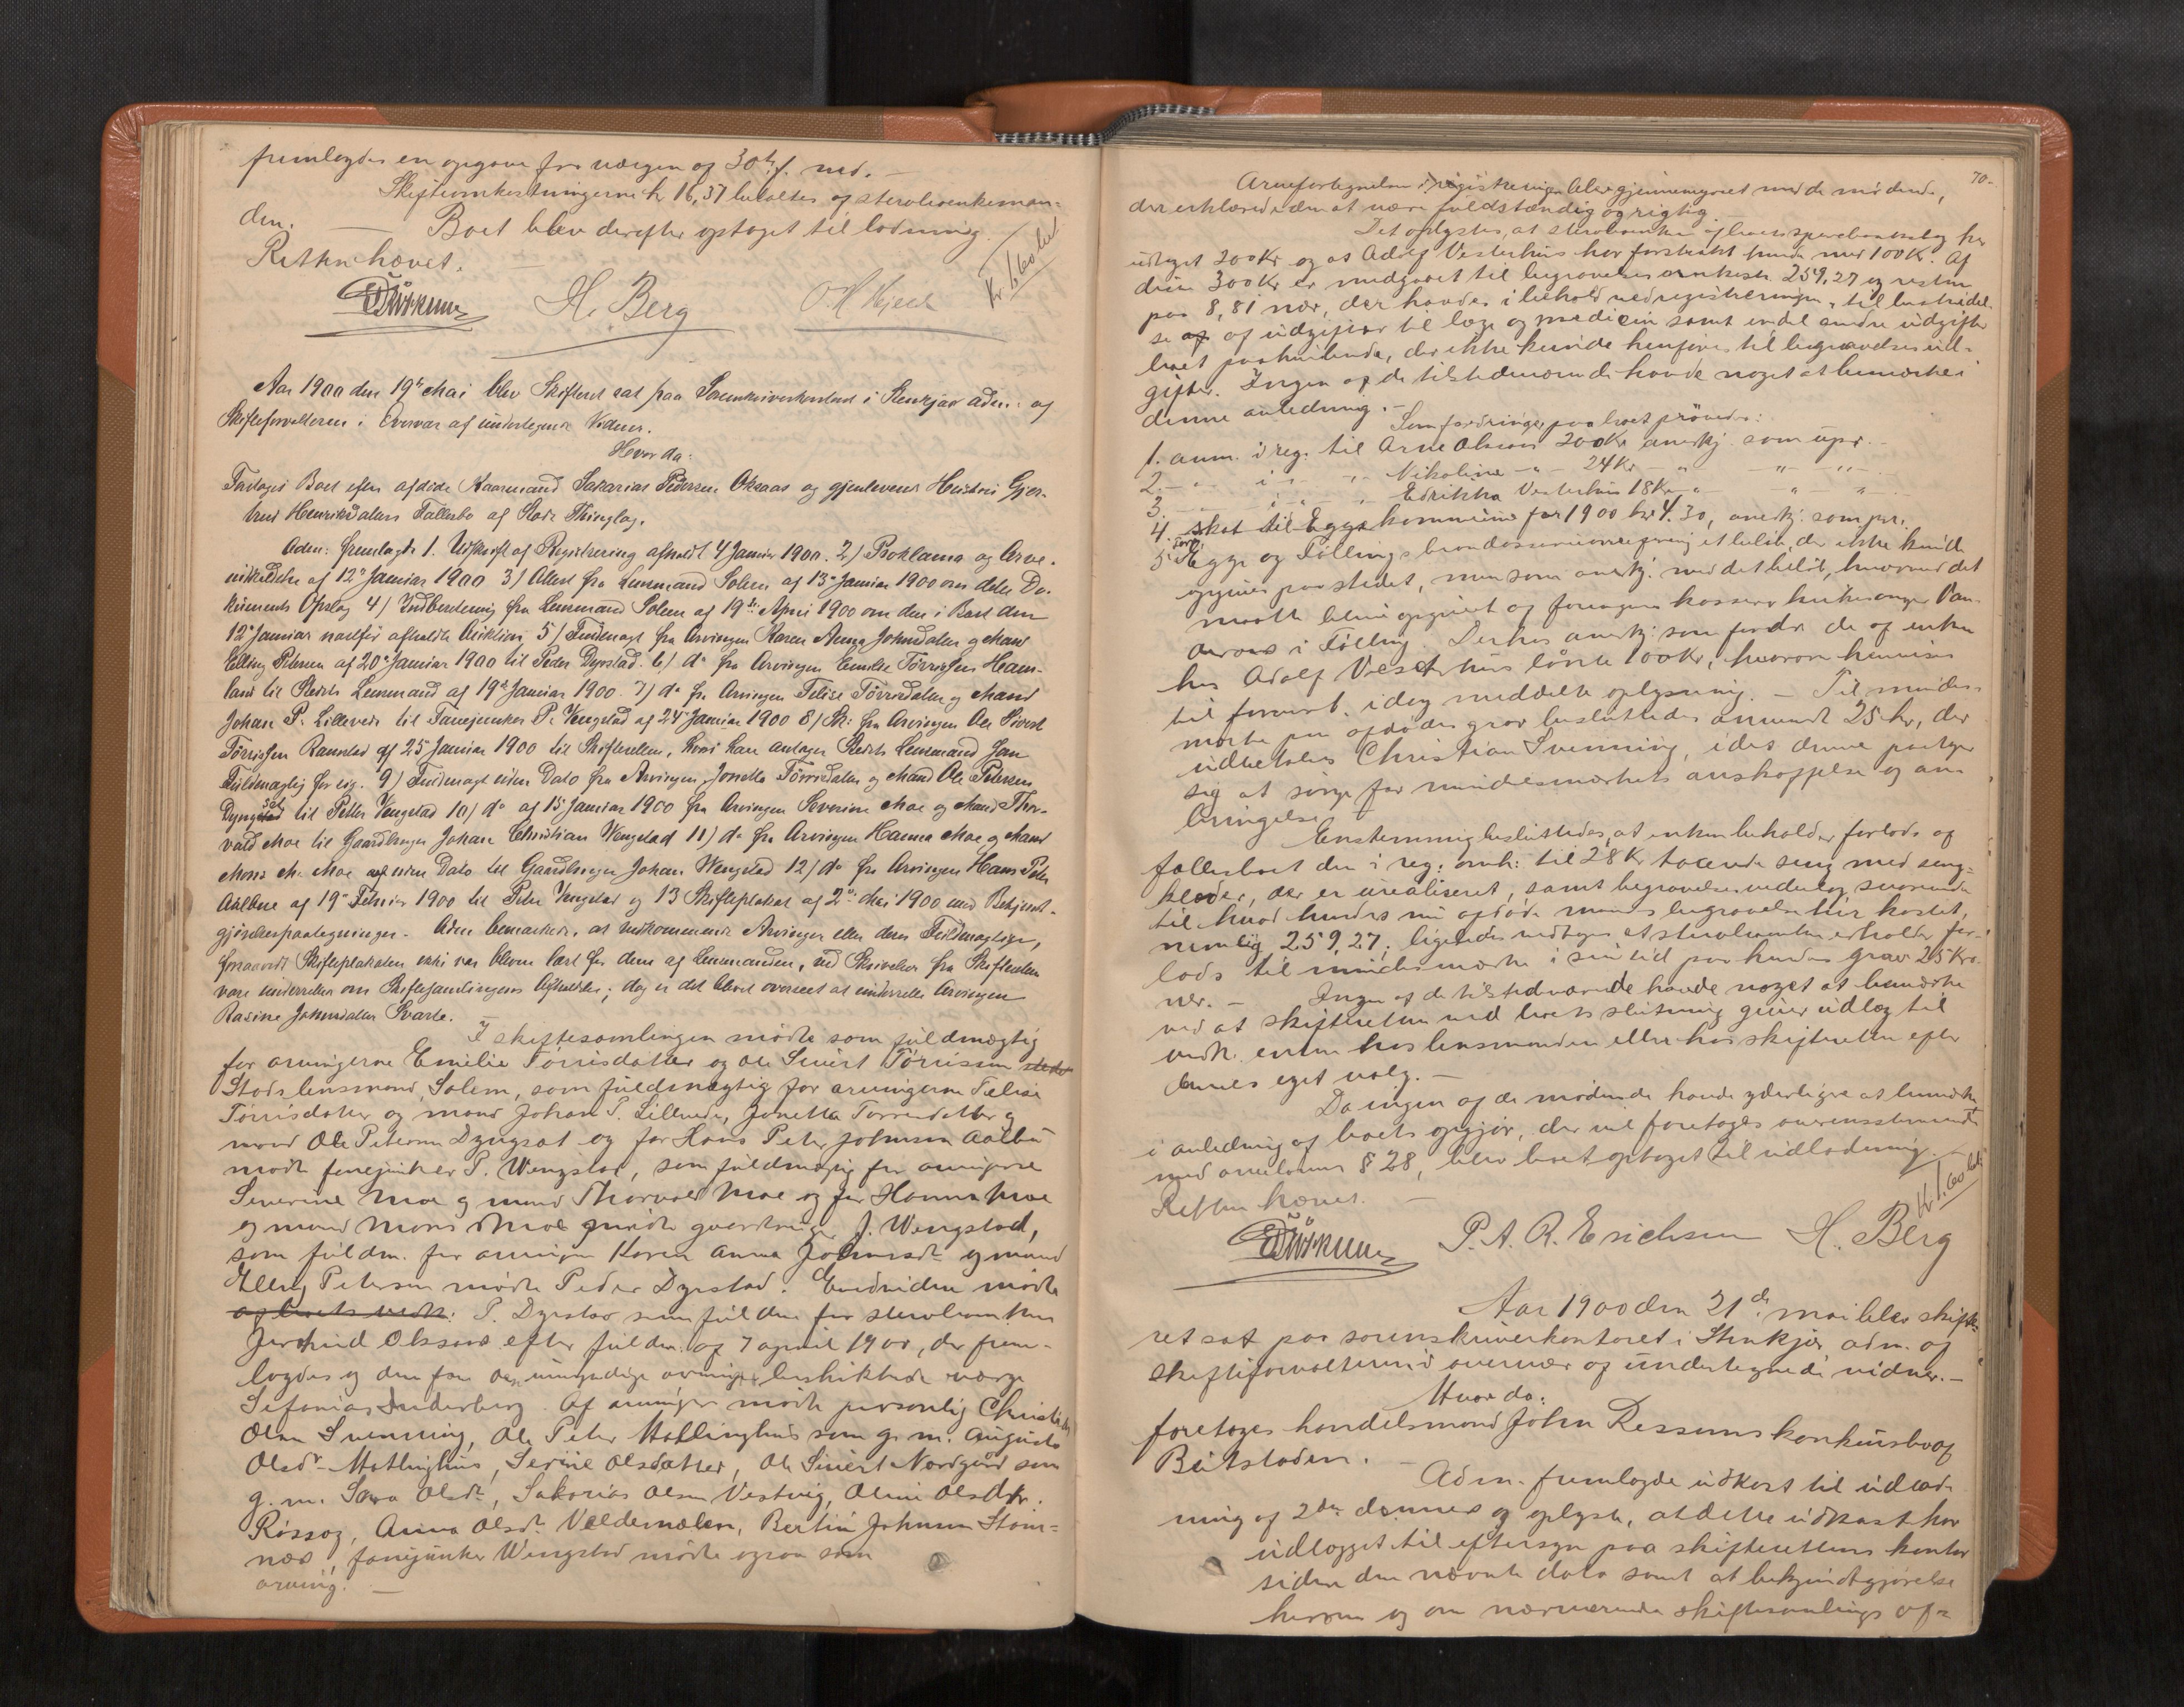 fremlagdes en opgave fra værgen af 30te f. md. —
Skifteomkostningerne kr 16,37 betaltes af stervboenkeman-
den. — Boet blev derefter optaget til lodning.
Retten hævet. —
H. Berg
Kr 1.60 bet
Aar 1900 den 19de Mai blev Skifteret sat paa Sorenskriverkontoret i Stenkjær adm. af
Skifteforvalteren i Overvær af undertegnede Vidner.
Hvor da:
Foretoges Boet efter afdøde Kaarmand Sakarias Pedersen Oksaas og gjenlevende Hustru Gjer-
trud Henriksdatters Fællesbo af Stods Thinglag.
Adm: fremlagde 1. Udskrift af Registrering afholdt 4 Januar 1900. 2) Proklama og Arve-
indkaldelse af 12te Januar 1900 3) Attest fra Lensmand Solem af 13de Januar 1900 om dette Do-
kuments Opslag 4) Indberetning fra Lensmand Solem af 19de April 1900 om den i Boet den
12te Januar næstfør afholdte Auktion 5) Fuldmagt fra Arvingen Karen Anna Johnsdatter og Mand
Elling Petersen af 20de Januar 1900 til Peder Dyrstad. 6) do fra Arvingen Emilie Tørrisdatter Ham-
land til Stedets Lensmand af 19de Januar 1900. 7) do fra Arvingen Felise Tørrisdatter og Mand
Johan P. Lillevede til Fanejunker P. Vengstad af 24de Januar 1900 8) Skr: fra Arvingen Ole Sivert
Tørrissen Ramstad af 25 Januar 1900 til Skifteretten, hvori han antager Stedets Lensmand som
Fuldmægtig for sig. 9) Fuldmagt uden Dato fra Arvingen Jonetta Tørrisdatter og Mand Ole Petersen
til Petter Vengstad 10) do af 15 Januar 1900 fra Arvingen Severine Moe og Mand Thor-
vald Moe til Gaardbruger Johan Christian Wengstad 11) do fra Arvingen Hanna Moe og Mand
Mons M. Moe uden Dato til Gaardbruger Johan Wengstad 12) do fra Arvingen Hans Peter
Aalbue af 19de Februar 1900 til Peter Vengstad og 13 Skifteplakat af 2den Mai 1900 med Bekjendt-
gjørelsespaategninger. Adm bemærkede, at vedkommende Arvinger eller deres Fuldmægtige,
forsaavidt Skifteplakaten ikke var bleven læst for dem af Lensmanden, ved Skrivelse fra Skifteretten
vare underrettet om Skiftesamlingens Afholdelse; dog er det blevet overseet at underrette Arvingen
Rasine Johnsdatter Svarte.
I skiftesamlingen mødte som fuldmægtig
for arvingerne Emilie Tørrisdatter og Ole Sivert Tørrissen
Stods lensmand Solem, som fuldmægtig for arvingerne Felise
Tørrisdatter og mand Johan P. Lillevede, Jonetta Tørrisdatter og
mand Ole Petersen Dyngsæt og for Hans Peter Johnsen Aalbu
mødte fanejunker P. Wengstad, som fuldmægtig for arvingerne
Severine Moe og mand Thorvald Moe og for Hanna Moe
og mand Mons Moe mødte gaardbruger J. Wengstad,
som fuldm. for arvingen Karen Anna Johnsdt. og mand
Elling Petersen mødte Peder Dyrstad. Endvidere mødte
P. Dyrstad som fuldm. for stervboenken
Jertrud Oksaas efter fuldm. af 7 april 1900, der frem-
lagdes og den for de umyndige arvinger beskikkede værge
Sefanias Inderberg. Af arvinger mødte personlig Christian
Olsen Svenning, Ole Peter Mollinghus som g. m. Augusta
Olsdr. Mollinghus, Serine Olsdatter, Ole Sivert Nordgård som
g. m. Sara Olsdr., Sakarias Olsen Vestvig, Oline Olsdtr.
Røssæg, Anna Olsdr. Veldemælen, Bertin Johnsen Stam-
næs, fanejunker Wengstad mødte ogsaa som
arving. —
70.
Arvefortegnelsen i registreringen blev gjennemgaaet med de mødende,
der erklærede den at være fuldstændig og rigtig.
Det oplystes, at stervboenken af boets sparebankindskud har
udtaget 200 Kr og at Adolf Vesterhus har forstrakt hende med 100 Kr. Af
disse 300 Kr er medgaaet til begravelsesomkostn. 259,27 og resten
paa 8,81 nær, der havdes i behold ved registreringen, til bestridel-
se af udgifter til læge og medicin samt endel andre udgifter
boet paahvilende, der ikke kunde henføres til begravelsesud-
gifter. Ingen af de tilstedeværende havde noget at bemærke i
denne anledning. —
Som fordringer paa boet prøvedes:
1. anm. i reg. til Arne Olsen 200 Kr anerkj. som upr. —
2. — " — i " — " Nikoline — " — 24 Kr — " — " — " —
3. — i " — " Edrikka Vesterhus 18 Kr — " — " — " —
4. skat til Egge kommune for 1900 kr 4.30, anerkj. som pr.
5. Egge og Føllings brandassuranceforening et beløb, der ikke kunde
opgives paa stedet, men som anerkj. med det beløb, hvormed det
maatte blive opgivet af foreningens kasserer kirkesanger Dan-
awas i Følling. Derhos anerkj. som fordr. de af enken
hos Adolf Vesterhus lånte 100 Kr, hvorom hennes
til forsvar. idag meddelte oplysning. — Til mindes-
mærke paa afdødes grav besluttedes anvendt 25 kr, der
udbetales Christian Svenning, idet denne paatager
sig at sørge for mindesmærkets anskaffelse og an-
bringelse.
Enstemmig besluttedes, at enken beholder forlods af
fællesboet den i reg. omh. til 28 Kr taxerede seng med seng-
klæder, der er urealiseret, samt begravelsesvederlag svarende
til hvad hendes nu afdøde mands begravelse har kostet,
nemlig 259,27, ligeledes vedtoges at stervboenken erholder for-
lods til mindesmærke i sin tid paa hendes grav 25 Kro-
ner. — Ingen af de tilstedeværende havde noget at bemærke
ved at skifteretten ved boets slutning giver udlæg til
vedk. enten hos lensmanden eller hos skifteretten efter
dennes eget valg. —
Da ingen af de mødende havde yderligere at bemærke
i anledning af boets opgjør, der vil foretages overensstemmende
med arvelovens § 28, blev boet optaget til udlodning. —
Retten hævet. —
Kr 1.60 bet
P. A. R. Erichsen H. Berg
Aar 1900 den 21de mai blev skifte-
ret sat paa sorenskriverkontoret i Stenkjær, adm. af
skifteforvalteren i overvær af undertegnede vidner. —
Hvor da:
foretoges handelsmand John Ressems konkursbo af
Beitstaden. —
Adm. fremlagde udkast til udlod-
ning af 2den dennes og oplyste, at dette udkast har
udlagget til eftersyn paa skifterettens kontor
siden den nævnte dato samt at bekjendtgjørelse
herom og om nærværende skiftesamlings af-